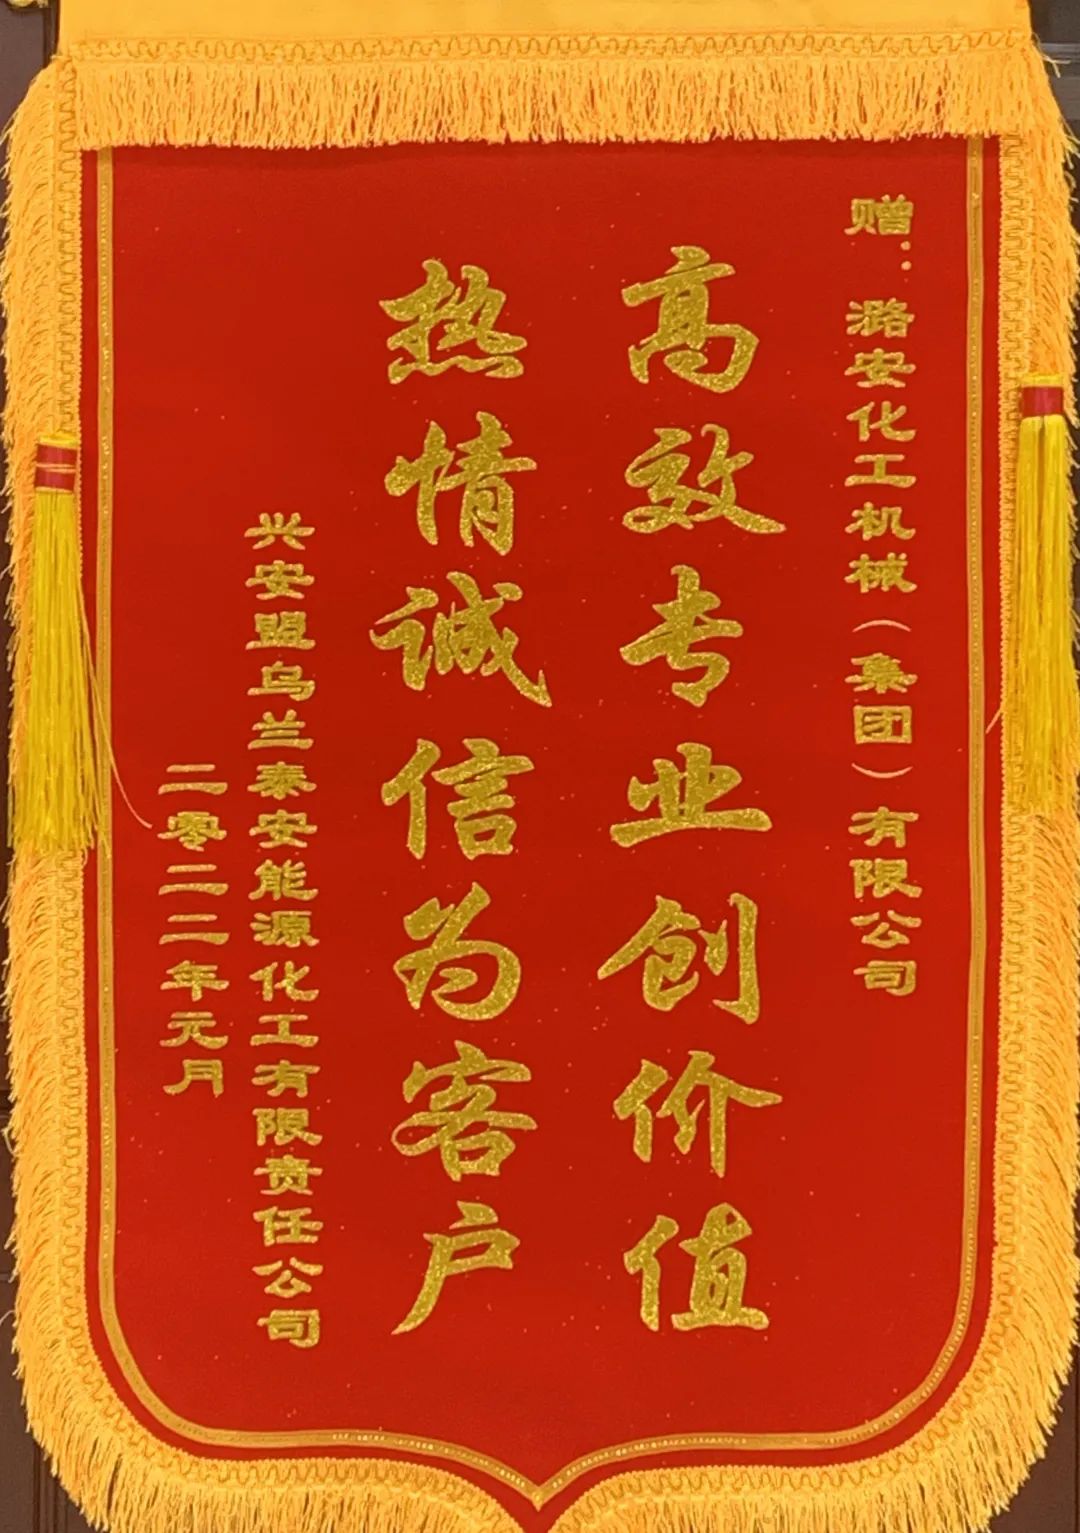 赠：潞安化工机械（集团）有限公司
高效专业创价值
热情诚信为客户
兴安盟乌兰泰安能源化工有限责任公司
二零二二年元月